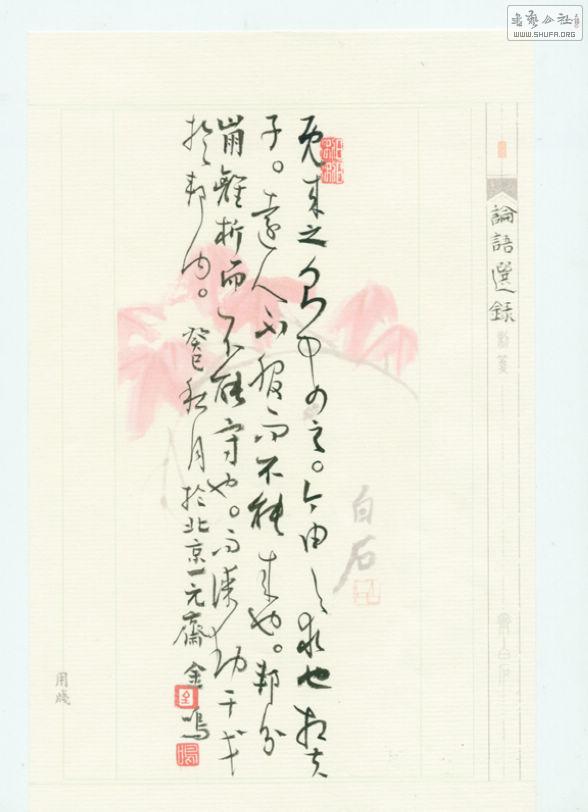 WWW.SHUFA.ORG
論語選録
既來之則安之。今由與求也相夫
子。遠人不服而不能來也。邦分
崩離析而不能守也。而謀動干戈
於邦内。癸巳秋月於北京一元齋 金鳴
白石
用牋